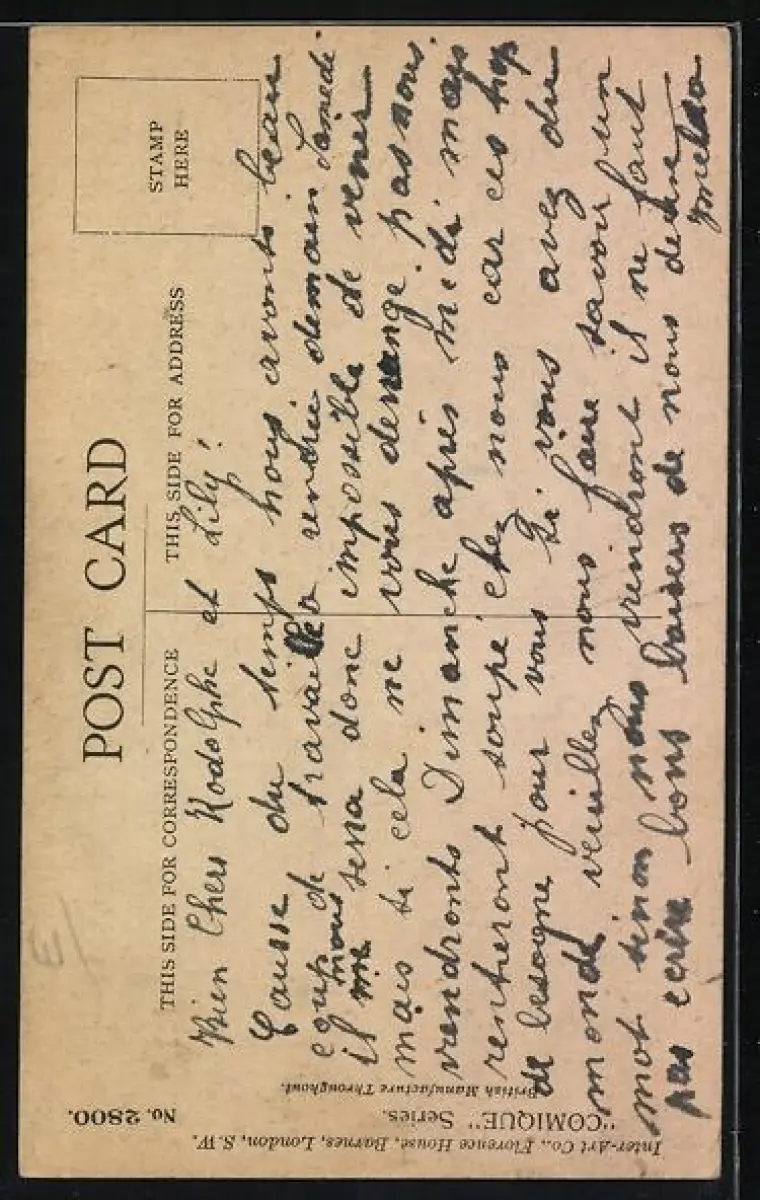 POST CARD
THIS SIDE FOR CORRESPONDENCE
THIS SIDE FOR ADDRESS
STAMP
HERE
Bien Chers Rodolphe et Lily!
Causse du temps nous avonts beau
coup de travaille a rendre demain Samedi
il nous sera donc impossible de venir
mais si cela ne vous derenge pas nous
viendronts Dimanche après midi mais
rentreront soupé chez nous car ces trop
de besogne pour vous Si vous avez du
monde veuillez nous faire savoir un
mot sinon nous viendront il ne faut
pas ecrire bons baisers de nous deux
Inter-Art Co., Florence House, Barnes, London, S.W.
"COMIQUE" Series.
No. 2800.
British Manufacture Throughout.